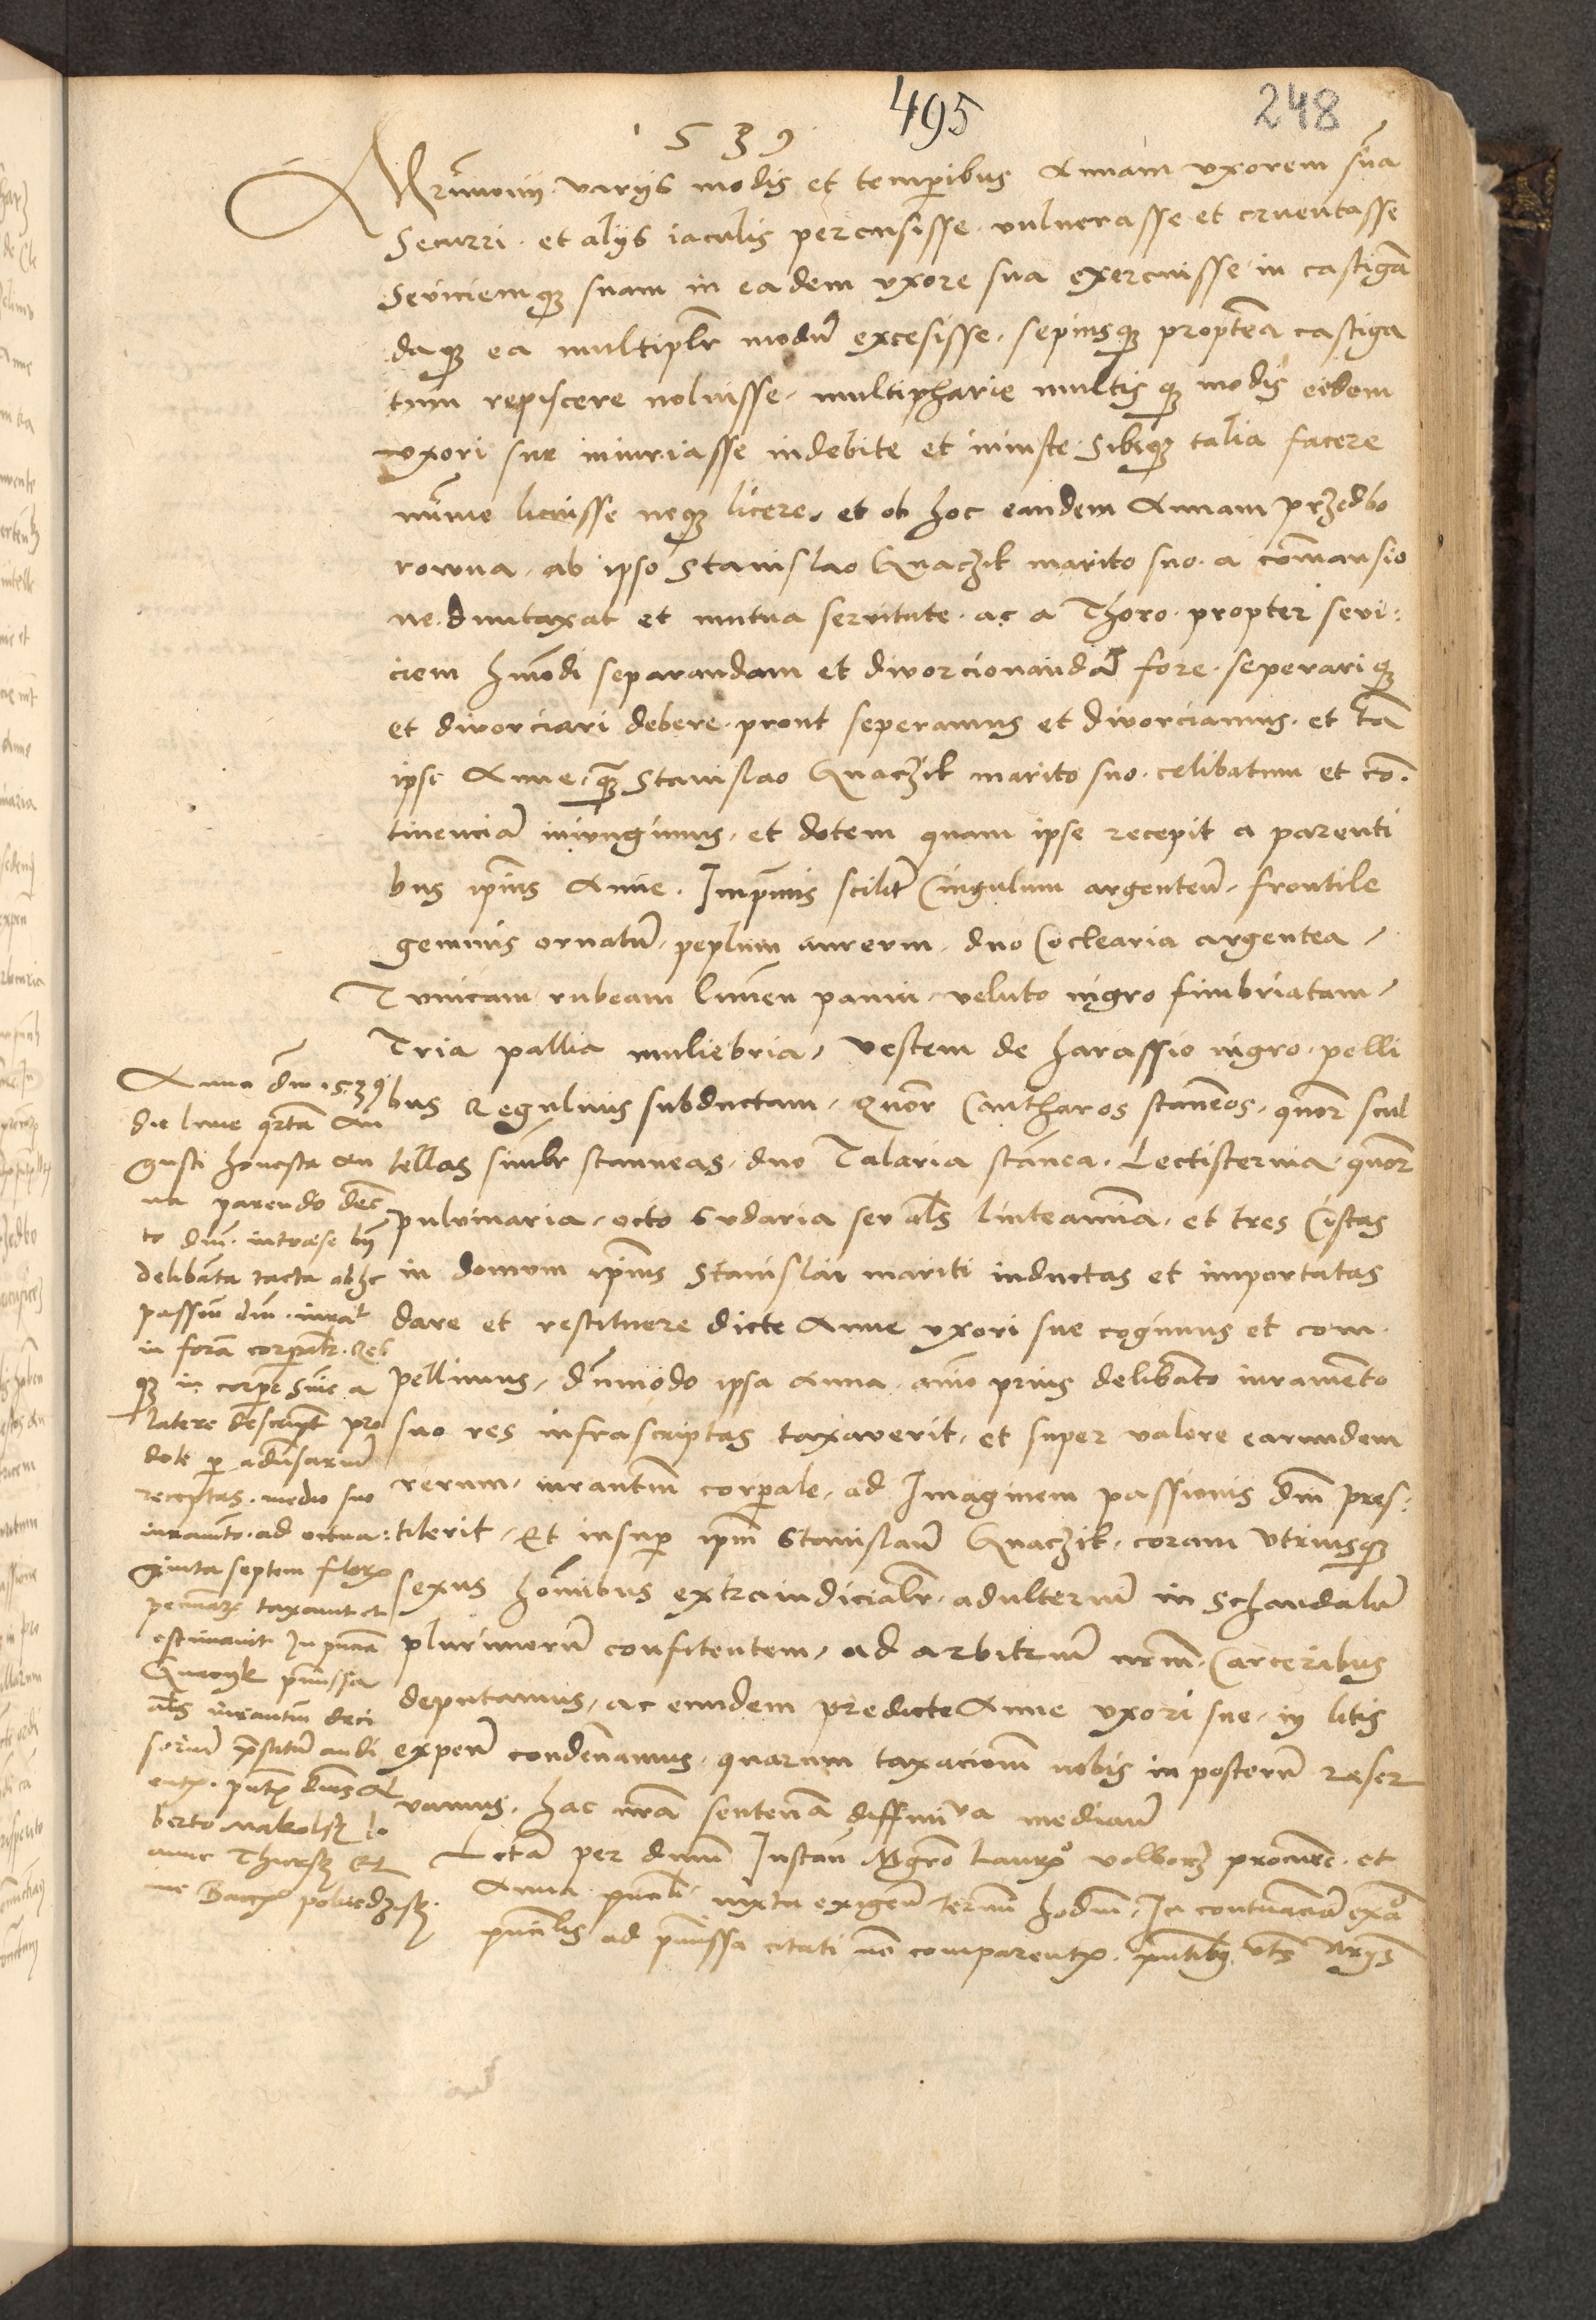 495
248
1539
Mrimonij varijs modis et temporibus Annam uxorem sua
Securri et alijs iaculis percusisse vulnerasse et cruentasse
Seviciemq suam in eadem uxore sua exercuisse in castiganda
daq ea multiplr modu excesisse sepiusq propterea castiga
tum repiscere noluisse multipharie multisq modis eidem
uxori sue iniuriasse indebite et iniuste Sibiq talia facere
mime licuisse neq licere et ob hoc eandem Annam przedbo
rowna ab ipso Stanislao Gnaczik marito suo a comansio
ne duntaxat et mutua servitute ac a Thoro propter sevi:
ciem hmodi separandam et divorcionandam fore seperariq
et divorciari debere prout seperamus et divorciamus et tam
ipsi Anne quam Stanislao Gnaczik marito suo celibatum et con
tinenciam iniungimus et dotem quam ipse recepit a parenti
bus ipsius Anne Imprimis scilicet Cingulum argenteu frontile
gemmis ornatu peplum aureum duo Coclearia argentea
Tunicam rubeam panni veluto nigro fimbriatam
Tria pallia muliebria vestem de harassio nigro pelli
bus subductam Quor Cantharos stanneos quor scul
tellas similr stanneas duo Talaria stannea Lectisternia quor
pulvinaria octo sudaria seu als linteamina et tres Cistas
in domum ipsius Stanislai mariti inductas et importatas
dare et restituere dicte Anne uxori sue cogimus et com
pellimus dummodo ipsa Anna animo prius deliberato iuramento
suo res infrascriptas taxaverit et super valore earundem
rerum iurantum corporale ad Imaginem passionis dni pres:
titerit Et insuper ipm Stanislau Gnaczik coram utriusq
sexus hominibus extraiudicialr adulteriu in Schandalu
plurimoru confitentem ad arbitriu nrm Carceribus
deputamus ac eundem predicte Anne uxori sue in litis
expen condemnamus quarum taxacionem nobis in posteru reser
vamus hac nra sentencia diffinitiva median
Lcta per dnum Instan Mgro Laurº procure et
Anna principali iuxta exigen termi hodni In contumaciam
principalis ad premissa citati non comparentis
Anno dni 1539
die lune quarta Au
gusti honesta An
na parendo decre
to dni
deliberata tacta
passionis dni iuravit
in forma corporali Res
q in corpore Sentencie a
latere descript pro
dote per adversarium
receptas medio suo
iuramento ad octua:
ginta septem florenos
taxavit et
estimavit In
Gnaczik premissa
als iurantum deci
soriu prestitum audi
entis
berto